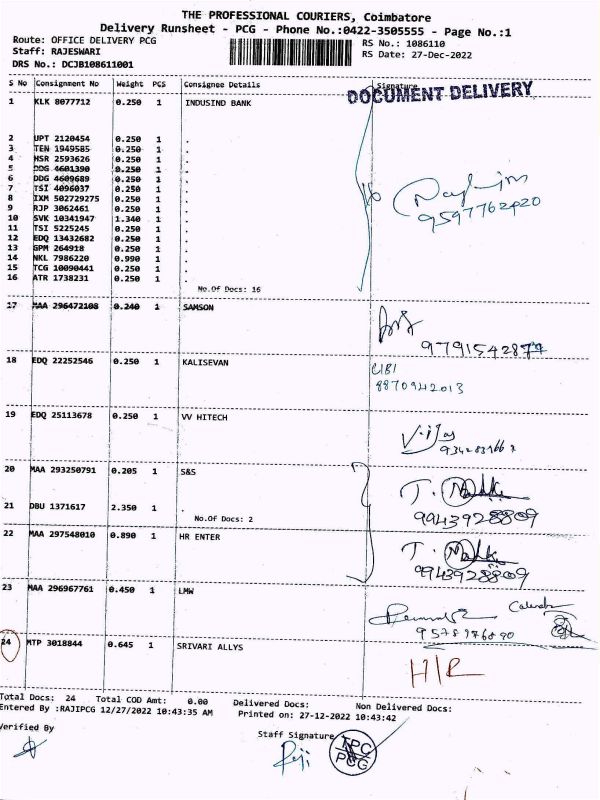 THE PROFESSIONAL COURIERS, Coimbatore
Delivery Runsheet - PCG - Phone No.:0422-3505555 - Page No.:1
Route: OFFICE DELIVERY PCG
RS No.: 1086110
Staff: RAJESWARI
RS Date: 27-Dec-2022
DRS No.: DCJB108611001
S No Consignment No Weight PCS Consignee Details Signature
DOCUMENT DELIVERY
1 KLK 8077712 0.250 1 INDUSIND BANK
2 UPT 2120454 0.250 1 .
3 TEN 1949585 0.250 1 .
4 HSR 2593626 0.250 1 .
5 DDG 4601390 0.250 1 .
6 DDG 4609689 0.250 1 .
7 TSI 4096037 0.250 1 .
8 IXM 502729275 0.250 1 .
9 RJP 3062461 0.250 1 .
10 SVK 10341947 1.340 1 .
11 TSI 5225245 0.250 1 .
12 EDQ 13432682 0.250 1 .
13 GPM 264918 0.250 1 .
14 NKL 7986220 0.990 1 .
15 TCG 10090441 0.250 1 .
16 ATR 1738231 0.250 1 .
No.Of Docs: 16
16
9597762420
17 MAA 296472108 0.240 1 SAMSON
18 EDQ 22252546 0.250 1 KALISEVAN
8870942013
19 EDQ 25113678 0.250 1 VV HITECH
Vijay
20 MAA 293250791 0.205 1 S&S
21 DBU 1371617 2.350 1 .
No.Of Docs: 2
9943928809
22 MAA 297548010 0.890 1 HR ENTER
9943928809
23 MAA 296967761 0.450 1 LMW
24 MTP 3018844 0.645 1 SRIVARI ALLYS
H/R
Total Docs: 24 Total COD Amt: 0.00 Delivered Docs: Non Delivered Docs:
Entered By :RAJIPCG 12/27/2022 10:43:35 AM Printed on: 27-12-2022 10:43:42
Verified By
Staff Signature
Raji
TPC
PCG